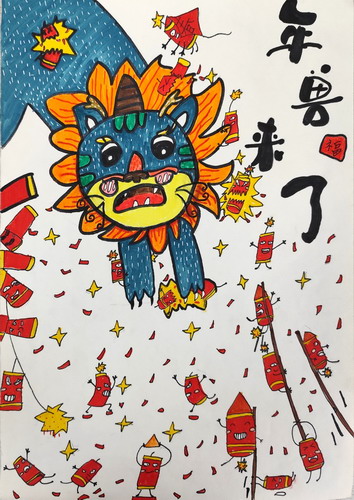 年兽来了
福